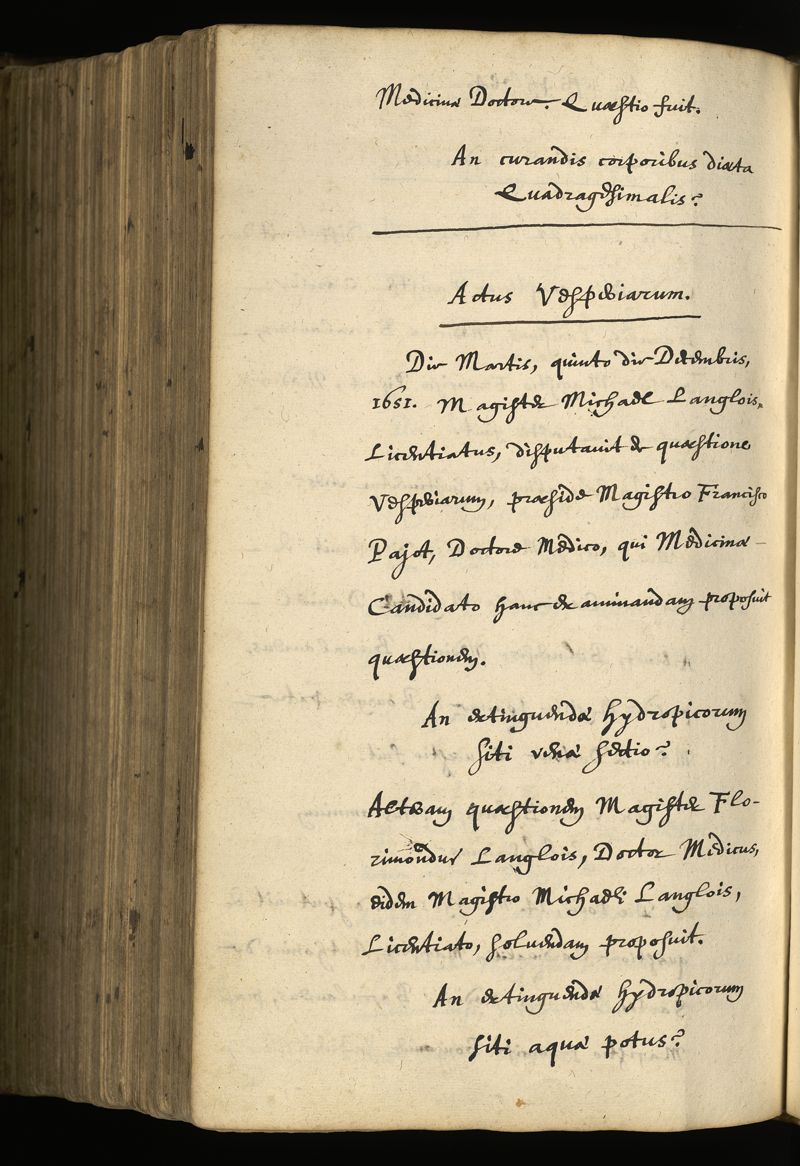 Medicinæ Doctore. Quæstio fuit.
An curandis corporibus diæta
Quadragesimalis?
Actus Vesperiarum.
Die Martis, quinto die Decembris,
1651. Magister Michael Langlois,
Licentiatus, disputavit de quæstione
Vesperiarum, præside Magistro Francisco
Pajot, Doctore Medico, qui Medicinæ
Candidato hanc examinandam proposuit
quæstionem.
An extinguendæ hydropicorum
siti venæ sectio?
Alteram quæstionem Magister Flo-
rimondus Langlois, Doctor Medicus,
eidem Magistro Michaeli Langlois,
Licentiato, solvendam proposuit.
An extinguendæ hydropicorum
siti aquæ potus?